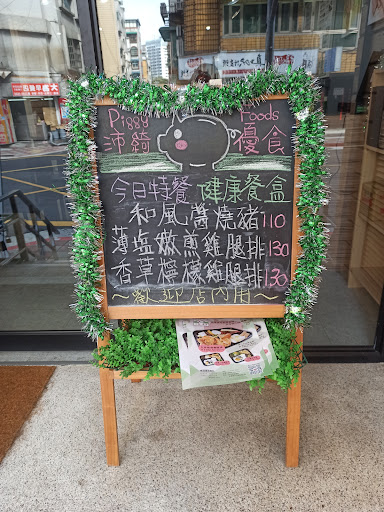 Piggy Foods
沛錡 優食
今日特餐 健康餐盒
和風醬燒豬 110
薄塩嫩煎雞腿排 130
香草檸檬雞腿排 130
~歡迎店內用~